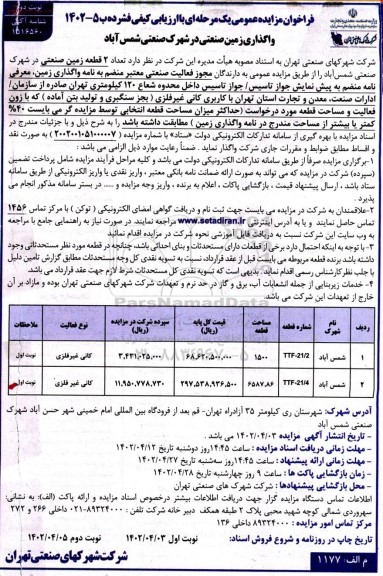 نوبت دوم
شناسه آگهی
۱۵۱۶۵۶۰
فراخوان مزایده عمومی یک مرحله‌ای با ارزیابی کیفی فشرده ب ۵-۱۴۰۲
واگذاری زمین صنعتی در شهرک صنعتی شمس آباد
شرکت شهرکهای صنعتی تهران به استناد مصوبه هیأت مدیره این شرکت در نظر دارد تعداد ۲ قطعه زمین صنعتی در شهرک
صنعتی شمس‌آباد را از طریق مزایده عمومی به دارندگان مجوز فعالیت صنعتی معتبر منضم به نامه واگذاری زمین، معرفی
نامه منضم به پیش نمایش جواز تاسیس/ جواز تاسیس داخل محدوده شعاع ۱۲۰ کیلومتری تهران صادره از سازمان/
ادارات صنعت، معدن و تجارت استان تهران با کاربری کانی غیرفلزی (بجز سنگبری و تولید بتن آماده) که با زون
فعالیت و مساحت قطعه مورد درخواست (حداکثر میزان مساحت قطعه انتخابی توسط مزایده گر می بایست ۴۰%
کمتر یا بیشتر از مساحت مندرج در نامه واگذاری زمین) مطابقت داشته باشد را به شرح ذیل و با جزئیات مندرج در
اسناد مزایده با بهره گیری از سامانه تدارکات الکترونیکی دولت «ستاد» با شماره مزایده (۲۰۰۲۰۰۱۰۵۱۰۰۰۰۰۷) به صورت نقد
و اقساط مطابق ضوابط و مقررات جاری شرکت واگذار نماید. ضمناً رعایت موارد ذیل الزامی می باشد:
۱-برگزاری مزایده صرفاً از طریق سامانه تدارکات الکترونیکی دولت می باشد و کلیه مراحل فرآیند مزایده شامل پرداخت تضمین
(سپرده) شرکت در مزایده که می تواند به صورت ارائه ضمانت نامه بانکی معتبر، واریز نقدی یا واریز الکترونیکی از طریق سامانه
ستاد باشد، ارسال پیشنهاد قیمت، بازگشایی پاکات، اعلام به برنده، واریز وجه مزایده و ..... در بستر سامانه مذکور انجام می
پذیرد.
۲-علاقمندان به شرکت در مزایده می بایست جهت ثبت نام و دریافت گواهی امضای الکترونیکی (توکن) با مرکز تماس ۱۴۵۶
تماس حاصل نمایند و یا به آدرس اینترنتی www.setadiran.ir مراجعه نمایند. در صورت نیاز به راهنمایی جامع با مراجعه
به وب سایت این شرکت نسبت به دریافت فایل آموزشی نحوه شرکت در مزایده اقدام نمائید
۳- با توجه به اینکه احتمال دارد برخی از قطعات دارای مستحدثات و بنای احداثی باشد، چنانچه در قطعه مورد نظر مستحدثاتی وجود
داشته باشد برنده قطعه مربوطه می بایست قبل از عقد قرارداد، نسبت به تسویه نقدی کل وجه مستحدثات مطابق گزارش تامین دلیل
با جلب نظر کارشناس رسمی اقدام نماید. بدیهی است که تسویه نقدی کل مستحدثات شرط لازم جهت عقد قرارداد می باشد.
۴- خدمات زیربنایی از جمله انشعابات آب، برق و گاز در حد نرم و تعهدات شرکت شهرکهای صنعتی تهران بوده و مازاد بر آن
خارج از تعهدات این شرکت می باشد.
ردیف | نام شهرک | شماره قطعه | مساحت قطعه | قیمت کل پایه (ریال) | سپرده شرکت در مزایده (ریال) | نوع فعالیت | ملاحظات
۱ | شمس آباد | TTF-21/2 | ۱۵۰۰ | ۶۸,۶۲۰,۵۰۰,۰۰۰ | ۳,۴۳۱,۰۲۵,۰۰۰ | کانی غیرفلزی | نوبت اول
۲ | شمس آباد | TTF-21/4 | ۶۵۸۷.۸۶ | ۲۹۷,۵۳۸,۹۳۶,۵۰۰ | ۱۱,۹۵۰,۷۷۸,۷۳۰ | کانی غیر فلزی | نوبت اول
آدرس شهرک: شهرستان ری کیلومتر ۳۵ آزادراه تهران- قم بعد از فرودگاه بین المللی امام خمینی شهر حسن آباد شهرک
صنعتی شمس آباد
- تاریخ انتشار آگهی مزایده ۱۴۰۲/۰۴/۰۳ می باشد.
- مهلت زمانی دریافت اسناد مزایده: ساعت ۱۴:۴۵ روز دوشنبه تاریخ ۱۴۰۲/۰۴/۱۲
- مهلت زمانی ارائه پیشنهاد: ساعت ۱۴:۴۵ روز سه‌شنبه تاریخ ۱۴۰۲/۰۴/۲۷
- زمان بازگشایی پاکت ها: ساعت ۹ روز چهارشنبه تاریخ ۱۴۰۲/۰۴/۲۸
- محل بازگشایی پیشنهادها: شرکت شهرک های صنعتی تهران
اطلاعات تماس دستگاه مزایده گزار جهت دریافت اطلاعات بیشتر درخصوص اسناد مزایده و ارائه پاکت (الف): به نشانی:
سهروردی شمالی کوچه شهید محبی پلاک ۲ طبقه همکف دبیر خانه شرکت تلفن: ۸۹۳۲۴۰۰۰-۰۲۱ داخلی ۲۶۶ و ۲۷۲
مرکز تماس امور مزایده: ۸۹۳۲۴۰۰۰ داخلی ۱۳۶
تاریخ چاپ در روزنامه و شروع فروش اسناد: نوبت اول ۱۴۰۲/۰۴/۰۳ نوبت دوم ۱۴۰۲/۰۴/۰۵
م الف: ۱۱۷۷
شرکت شهرکهای صنعتی تهران